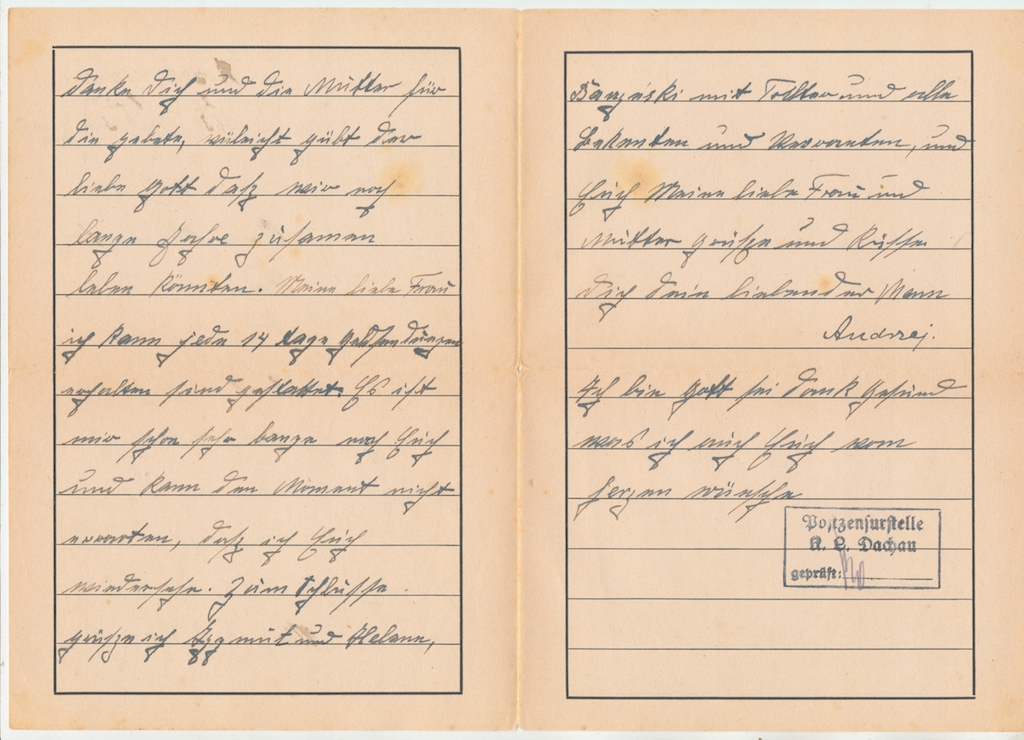 danke Dich und die Mutter für
die gebete, vileicht gübt der
liebe Gott daß wir noch
lange Jahre zusamen
leben könnten. Meine liebe Frau
ich kann jede 14 tage Geldsendungen
erhalten sind gestattet. Es ist
mir schon sehr bange nach Euch
und kann den Moment nicht
erwarten, daß ich Euch
wiedersehe. Zum Schlusse
grüsze ich und Helene,
mit Tochter und alle
Bekenten und Verwanten, und
Euch Meine liebe Frau und
Mutter grüsze und Küsse
Dich dein liebender Mann
Andrzej.
Ich bin Gott sei dank Gesund
was ich auch Euch vom
herzen wünsche
Postzensurstelle
K. L. Dachau
geprüft: